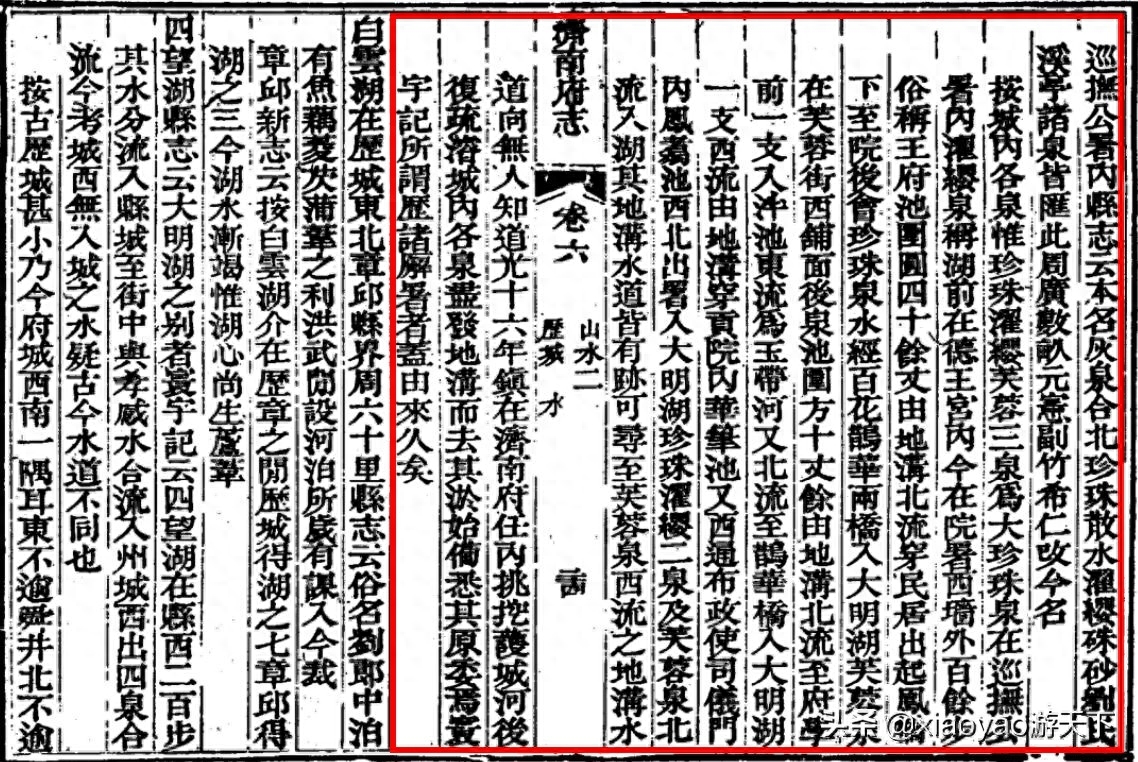 巡撫公署內縣志云本名灰泉合北珍珠散水濯纓硃砂劉氏
溪亭諸泉皆匯此周廣數畝元憲副竹希仁改今名
按城內各泉惟珍珠濯纓芙蓉三泉為大珍珠泉在巡撫公
署內濯纓泉稱湖前在德王宮內今在院署西墻外百餘步
俗稱王府池圍圓四十餘丈由地溝北流穿民居出起鳳橋
下至院後會珍珠泉水經百花鵲華兩橋入大明湖芙蓉泉
在芙蓉街西鋪面後泉池圍方十丈餘由地溝北流至府學
前一支入泮池東流為玉帶河又北流至鵲華橋入大明湖
一支西流由地溝穿貢院內華筆池又西通布政使司儀門
內鳳翥池西北出署入大明湖珍珠濯纓二泉及芙蓉泉北
流入湖其地溝水道皆有跡可尋至芙蓉泉西流之地溝水
濟南府志
卷六
山水二
歷城 水
道向無人知道光十六年鎮在濟南府任內挑挖護城河後
復疏濬城內各泉盡發地溝而去其淤始備悉其原委焉寰
宇記所謂歷諸廨署者蓋由來久矣
白雲湖在歷城東北章邱縣界周六十里縣志云俗名劉郎中泊
有魚藕菱芡蒲葦之利洪武間設河泊所歲有課入今裁
章邱新志云按白雲湖介在歷章之間歷城得湖之七章邱得
湖之三今湖水漸竭惟湖心尚生蘆葦
四望湖縣志云大明湖之別者寰宇記云四望湖在縣西二百步
其水分流入縣城至街中與孝感水合流入州城西出四泉合
流今考城西無入城之水疑古今水道不同也
按古歷城甚小乃今府城西南一隅耳東不逾舜井北不逾
头条 @xiaoyao游天下